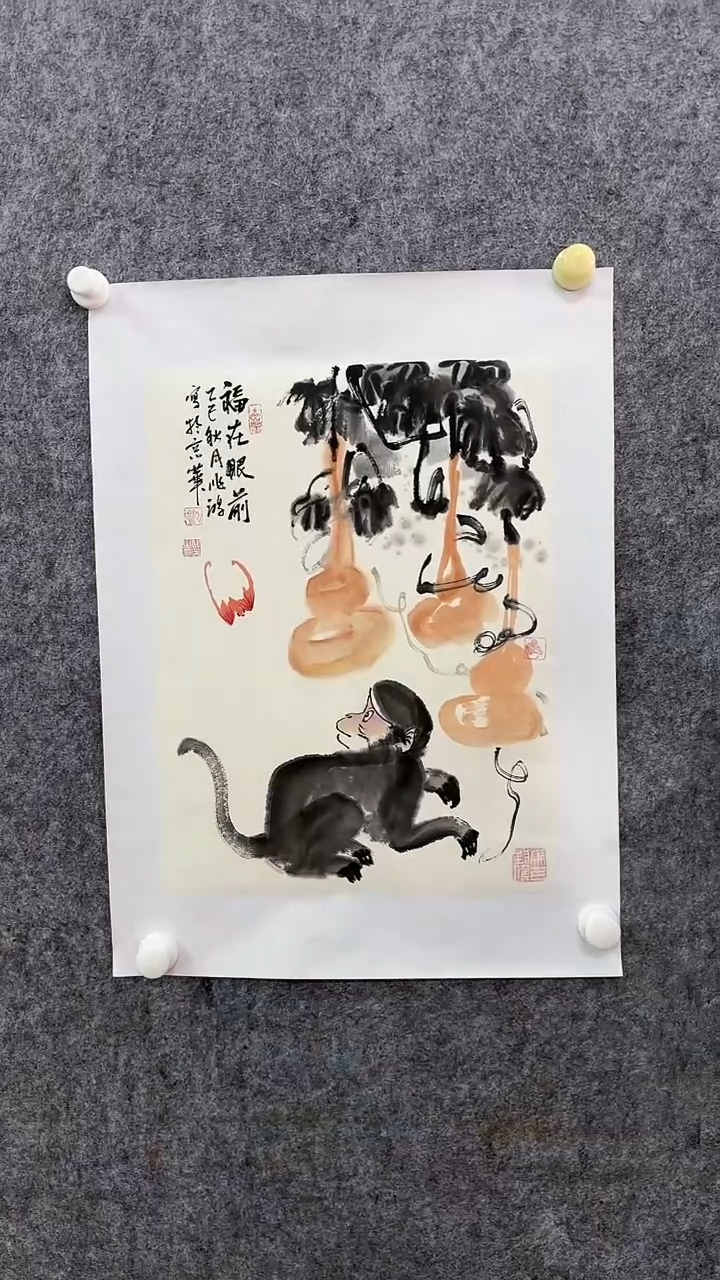 福在眼前
乙巳秋月兆鸿
写於京華